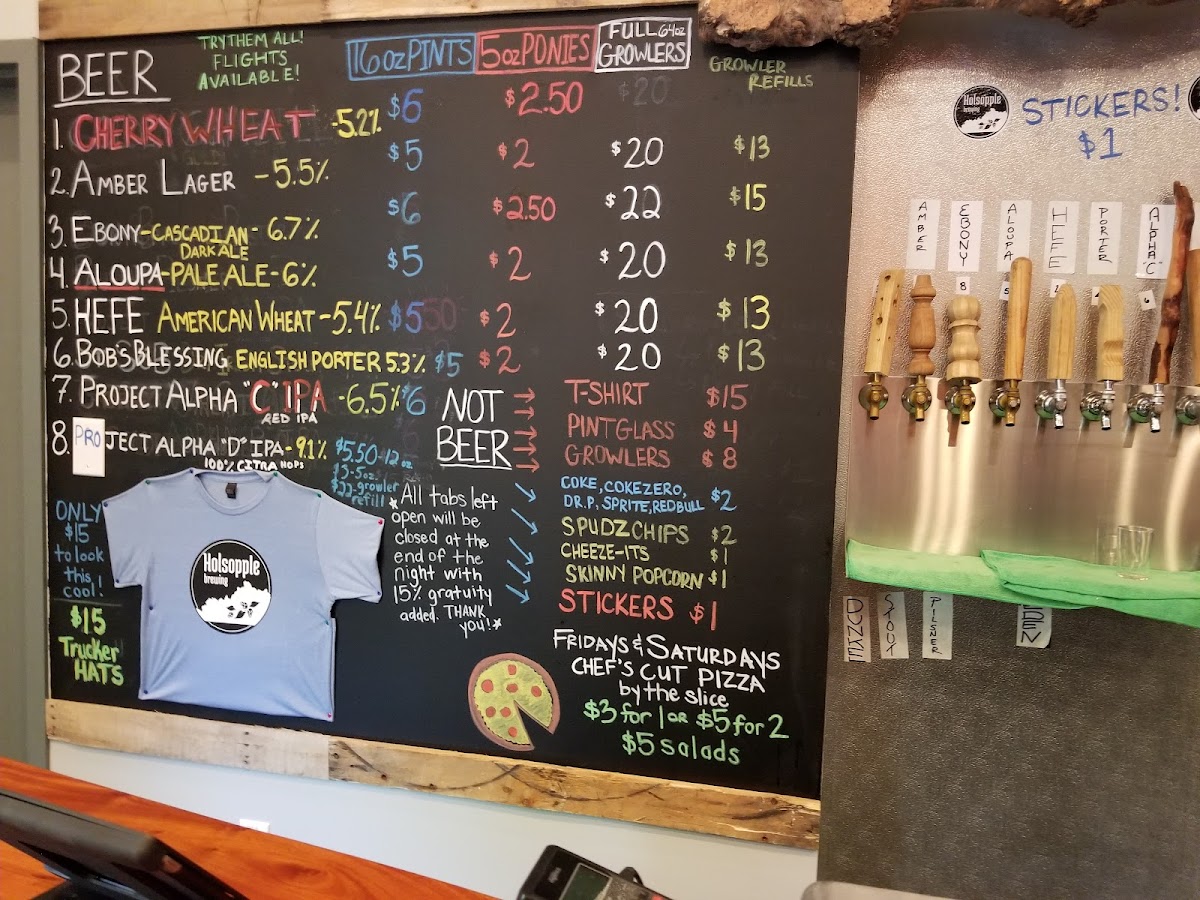 BEER
TRY THEM ALL!
FLIGHTS
AVAILABLE!
16oz PINTS
5oz PONIES
FULL 64oz
GROWLERS
GROWLER
REFILLS
1. CHERRY WHEAT -5.2% $6 $2.50
2. AMBER LAGER -5.5% $5 $2 $20 $13
3. EBONY-CASCADIAN- 6.7% $6 $2.50 $22 $15
DARK ALE
4. ALOUPA-PALE ALE-6% $5 $2 $20 $13
5. HEFE AMERICAN WHEAT -5.4% $5 $2 $20 $13
6. BOB'S BLESSING ENGLISH PORTER 5.3% $5 $2 $20 $13
7. PROJECT ALPHA "C" IPA -6.5% $6
RED IPA
8. PROJECT ALPHA "D" IPA- 9.1% $5.50-12oz
100% CITRA HOPS
$3-5oz
$22-growler
refill
NOT
BEER
T-SHIRT $15
PINT GLASS $4
GROWLERS $8
COKE, COKE ZERO,
DR.P, SPRITE, REDBULL $2
SPUDZ CHIPS $2
CHEEZE-ITS $1
SKINNY POPCORN $1
STICKERS $1
*All tabs left
open will be
closed at the
end of the
night with
15% gratuity
added. THANK
you!*
ONLY
$15
to look
this
cool!
$15
Trucker
HATS
Holsopple
brewing
FRIDAYS & SATURDAYS
CHEF'S CUT PIZZA
by the slice
$3 for 1 OR $5 for 2
$5 salads
Holsopple
brewing
STICKERS!
$1
AMBER
EBONY
ALOUPA
HEFE
PORTER
ALPHA "C"
8
5
6
STOUT
PILSNER